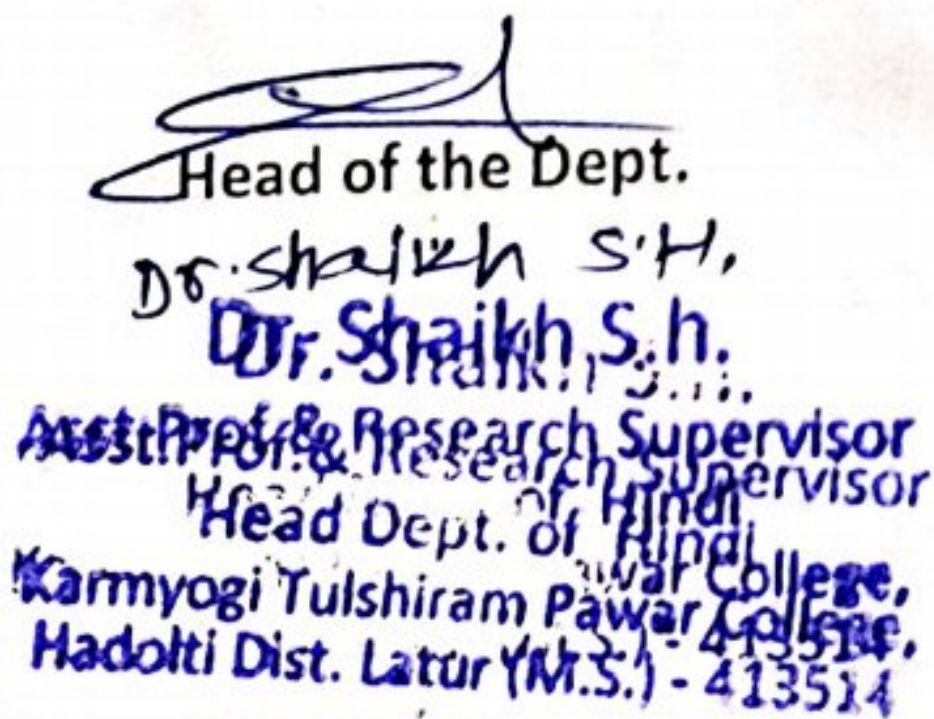 Head of the Dept.
Dr. Shaikh S.H.
Dr. Shaikh S.h.
Asst. Prof. & Research Supervisor
Head Dept. of Hindi
Karmyogi Tulshiram Pawar College,
Hadolti Dist. Latur (M.S.) - 413514